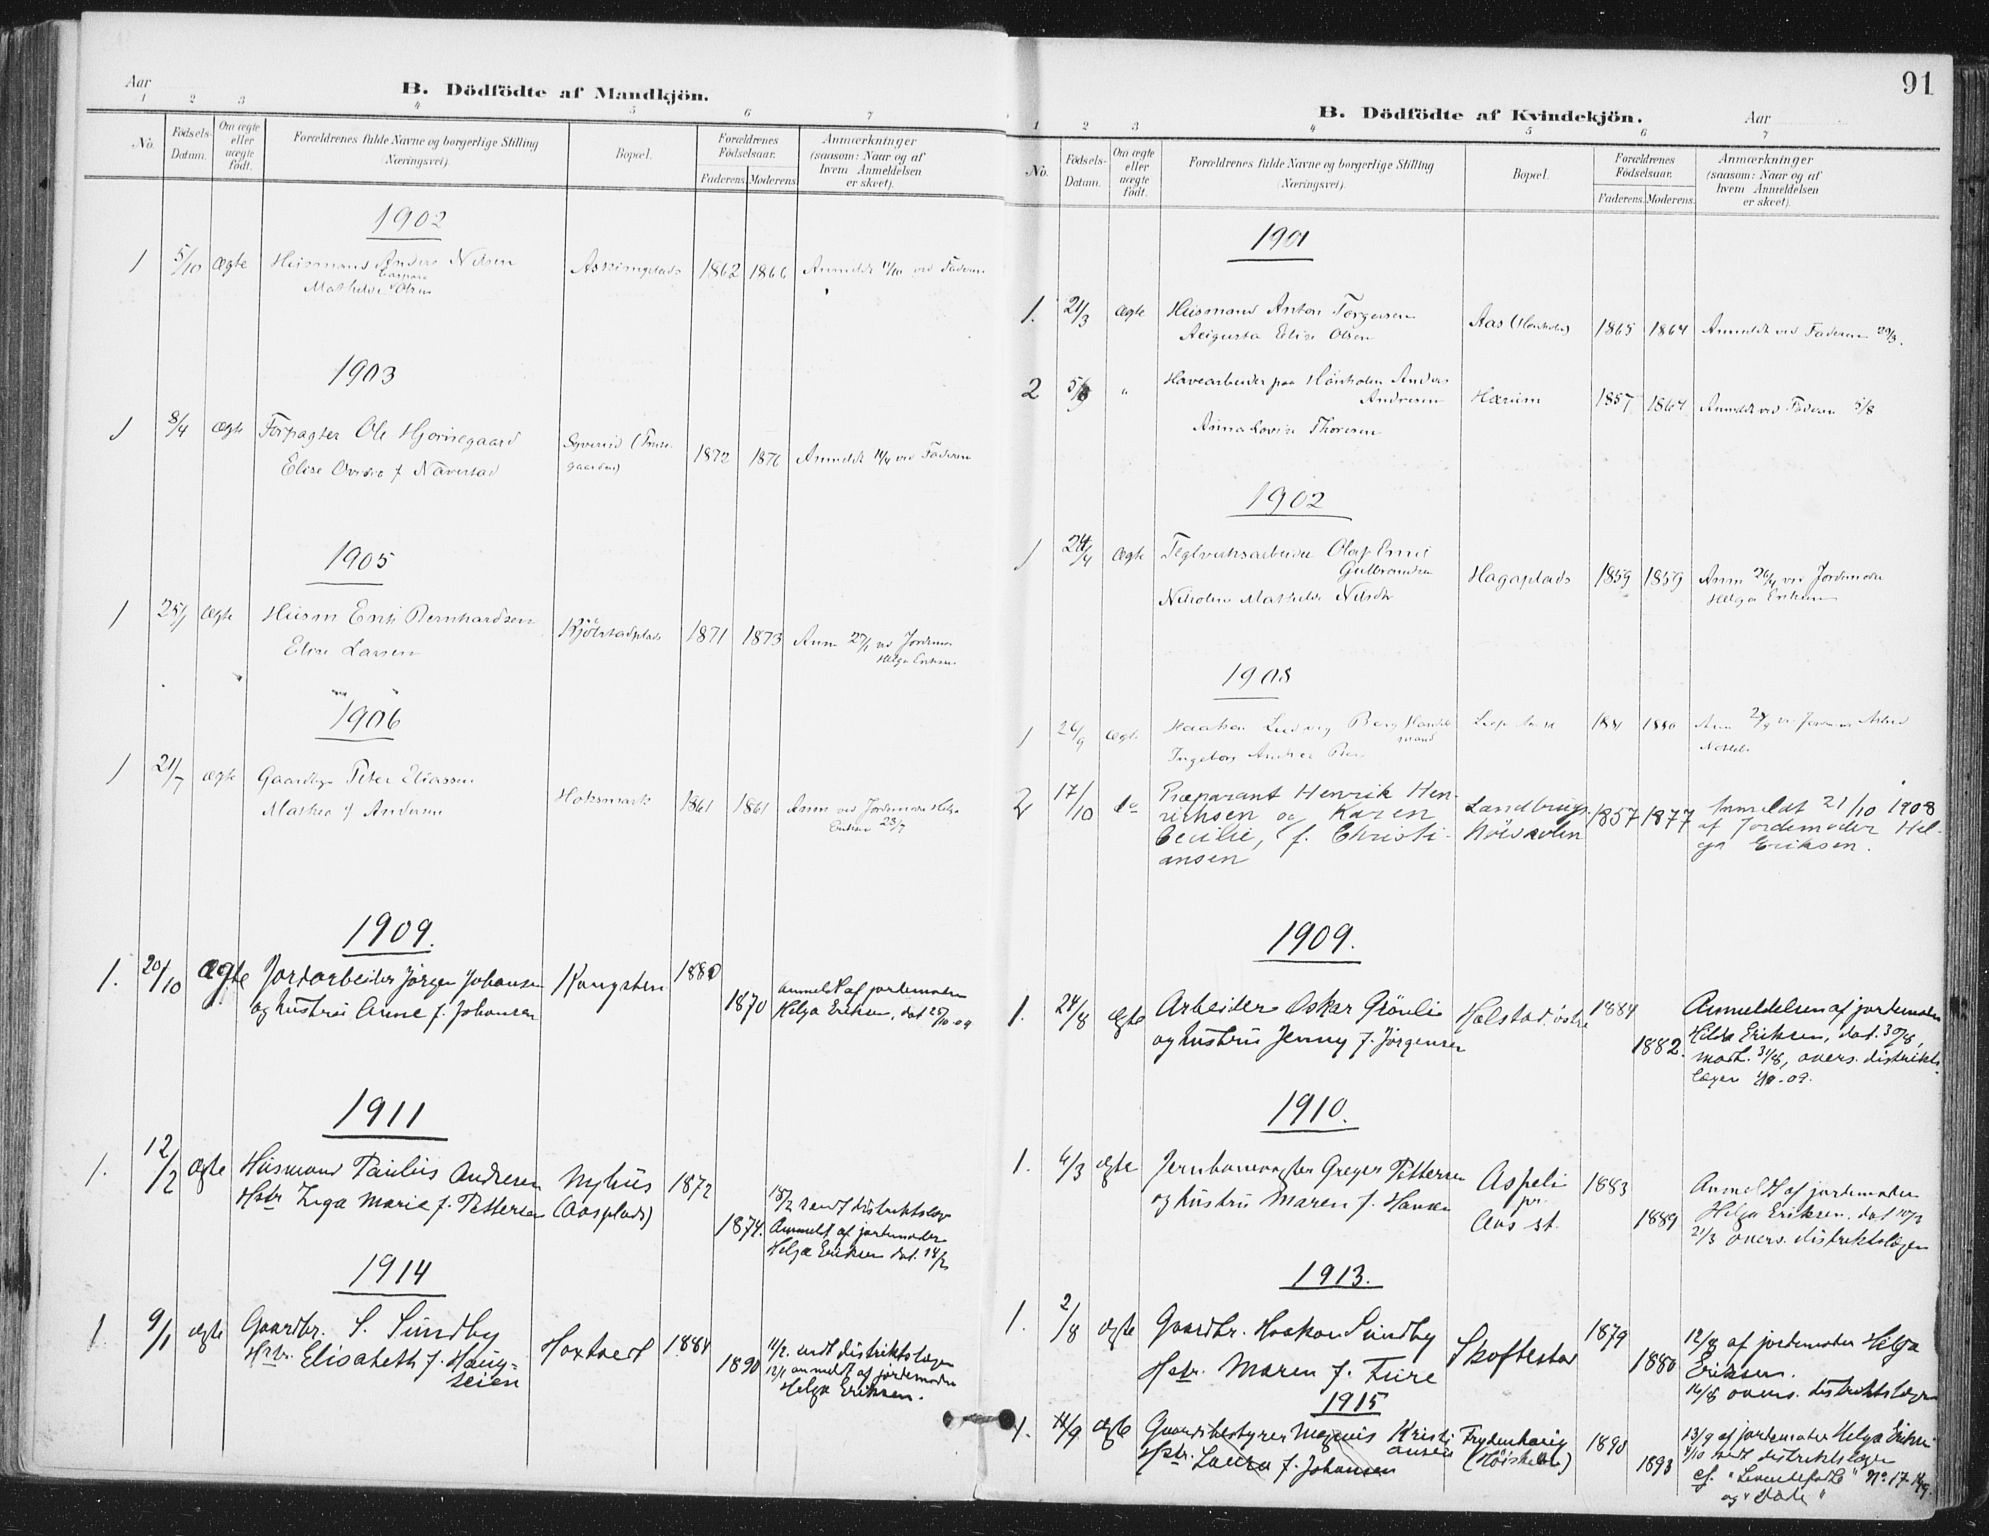 Aar
B. Dödfödte af Mandkjön.
1 2 3 4 5 6 7
No.
Födsels-
Datum.
Om ægte
eller
uægte
födt.
Forældrenes fulde Navne og borgerlige Stilling
(Næringsvei).
Bopæl.
Forældrenes
Födselsaar.
Faderens. Moderens.
Anmærkninger
(saasom: Naar og af
hvem Anmeldelsen
er skeet).
1902
1 5/10 ægte Husmand Anders Nilsen Askimplads 1862 1866 Anmeldt 11/10 ved Faderen
Mathilde Olsen
1903
1 8/4 ægte Forpagter Ole Hjornegaard
Elise f Naverstad 1872 1876 Anmeldt 11/4 ved Faderen
1905
1 25/1 ægte Husm Bernhardsen Kjölstadplads 1871 1873 Anm 27/1 ved Jordemor
Elise Larsen Helga Eriksen
1906
1 21/7 ægte Gaardbr Peter Eliassen
Mathea f Andersen 1861 1861 Anm ved Jordemoder Helga
Eriksen 23/7
1909.
1. 20/10 ægte Jordarbeider Jørgen Johansen Kongsten 1880
og hustru Anne f. Johansen 1870 anmeldt af jordemoder
Helga Eriksen, dat 25/10-09
1911
1. 12/2 ægte Husmand Paulus Andresen Nyhus 1872
Hstr Inga Marie f. Pettersen (Aasplads) 18/2 sendt distriktslæge
1874. Anmeldt af jordemoder
Helga Eriksen dat. 14/2
1914
1 9/1 ægte Gaardbr. S. Sundby Hoxtvedt 1884
Hstr. Elisabeth f. Haug= 1890 11/2. sendt distriktslægen
seien 12/1 anmeldt af jordemoder
Helga Eriksen.
91
B. Dödfödte af Kvindekjön.
Aar
1 2 3 4 5 6 7
No.
Födsels-
Datum.
Om ægte
eller
uægte
födt.
Forældrenes fulde Navne og borgerlige Stilling
(Næringsvei).
Bopæl.
Forældrenes
Födselsaar.
Faderens. Moderens.
Anmærkninger
(saasom: Naar og af
hvem Anmeldelsen
er skeet).
1901
1. 21/3 ægte Husmand Anton Torgersen Aas 1865 1864 Anmeldt ved Faderen 29/3.
Augusta Elise Olsen
2 5/8 " Havearbeider paa Höiskolen Anders
Andresen Hærum 1857 1864 Anmeldt ved Faderen 5/8
Anna Lovise Thoresen
1902
1 24/4 ægte Teglverksarbeider Olaf Emil
Gulbrandsen Hagaplads 1859 1859 Anm 26/4 ved Jordemoder
Mathilde Nilsdr Helga Eriksen
1908
1 26/9 ægte Haakon Ludvig Berg Handels
mand 1881 1880 Anm 28/9
Ingeborg Andrea
2 17/10 do Præparant Henrik Hen-
riksen og Karen
Cecilie, f. Christi-
ansen
Landbrugs
höiskolen 1857 1877 Anmeldt 21/10 1908
af Jordemoder Hel-
ga Eriksen.
1909.
1. 24/8 ægte Arbeider Oskar Grönlie Holstad östre 1884
og hustru Jenny f. Jørgensen 1882. Anmeldelsen af jordemoder
Hilda Eriksen, dat. 30/8,
modt. 31/8, overs. distrikts-
lægen 1/10-09.
1910.
1. 6/3 ægte Jernbanevogter Greger Pettersen Aspeli 1883
og hustru Maren f. Hansen pr.
Aas st. 1889 Anmeldt af jordemoder
Helga Eriksen, dat 10/3
21/3 overs. distriktslægen
1913.
1. 2/8 ægte Gaardbr. Haakon Sundby Skoftestad 1879
Hstr. Maren f. Fure 1880 12/8 af jordemoder Helga
Eriksen.
14/8 overs. distriktslægen
1915
1. 11/9 ægte Gaardsbestyrer Magnus Kristi
ansen Frydenhaug 1890
Hstr. Laura f. Johansen (Höiskolen) 1893 13/9 af jordemoder Helga Eriksen
1/10 sendt distriktslægen
cf. "Levendefödte" No 17-19.
og "Döde"